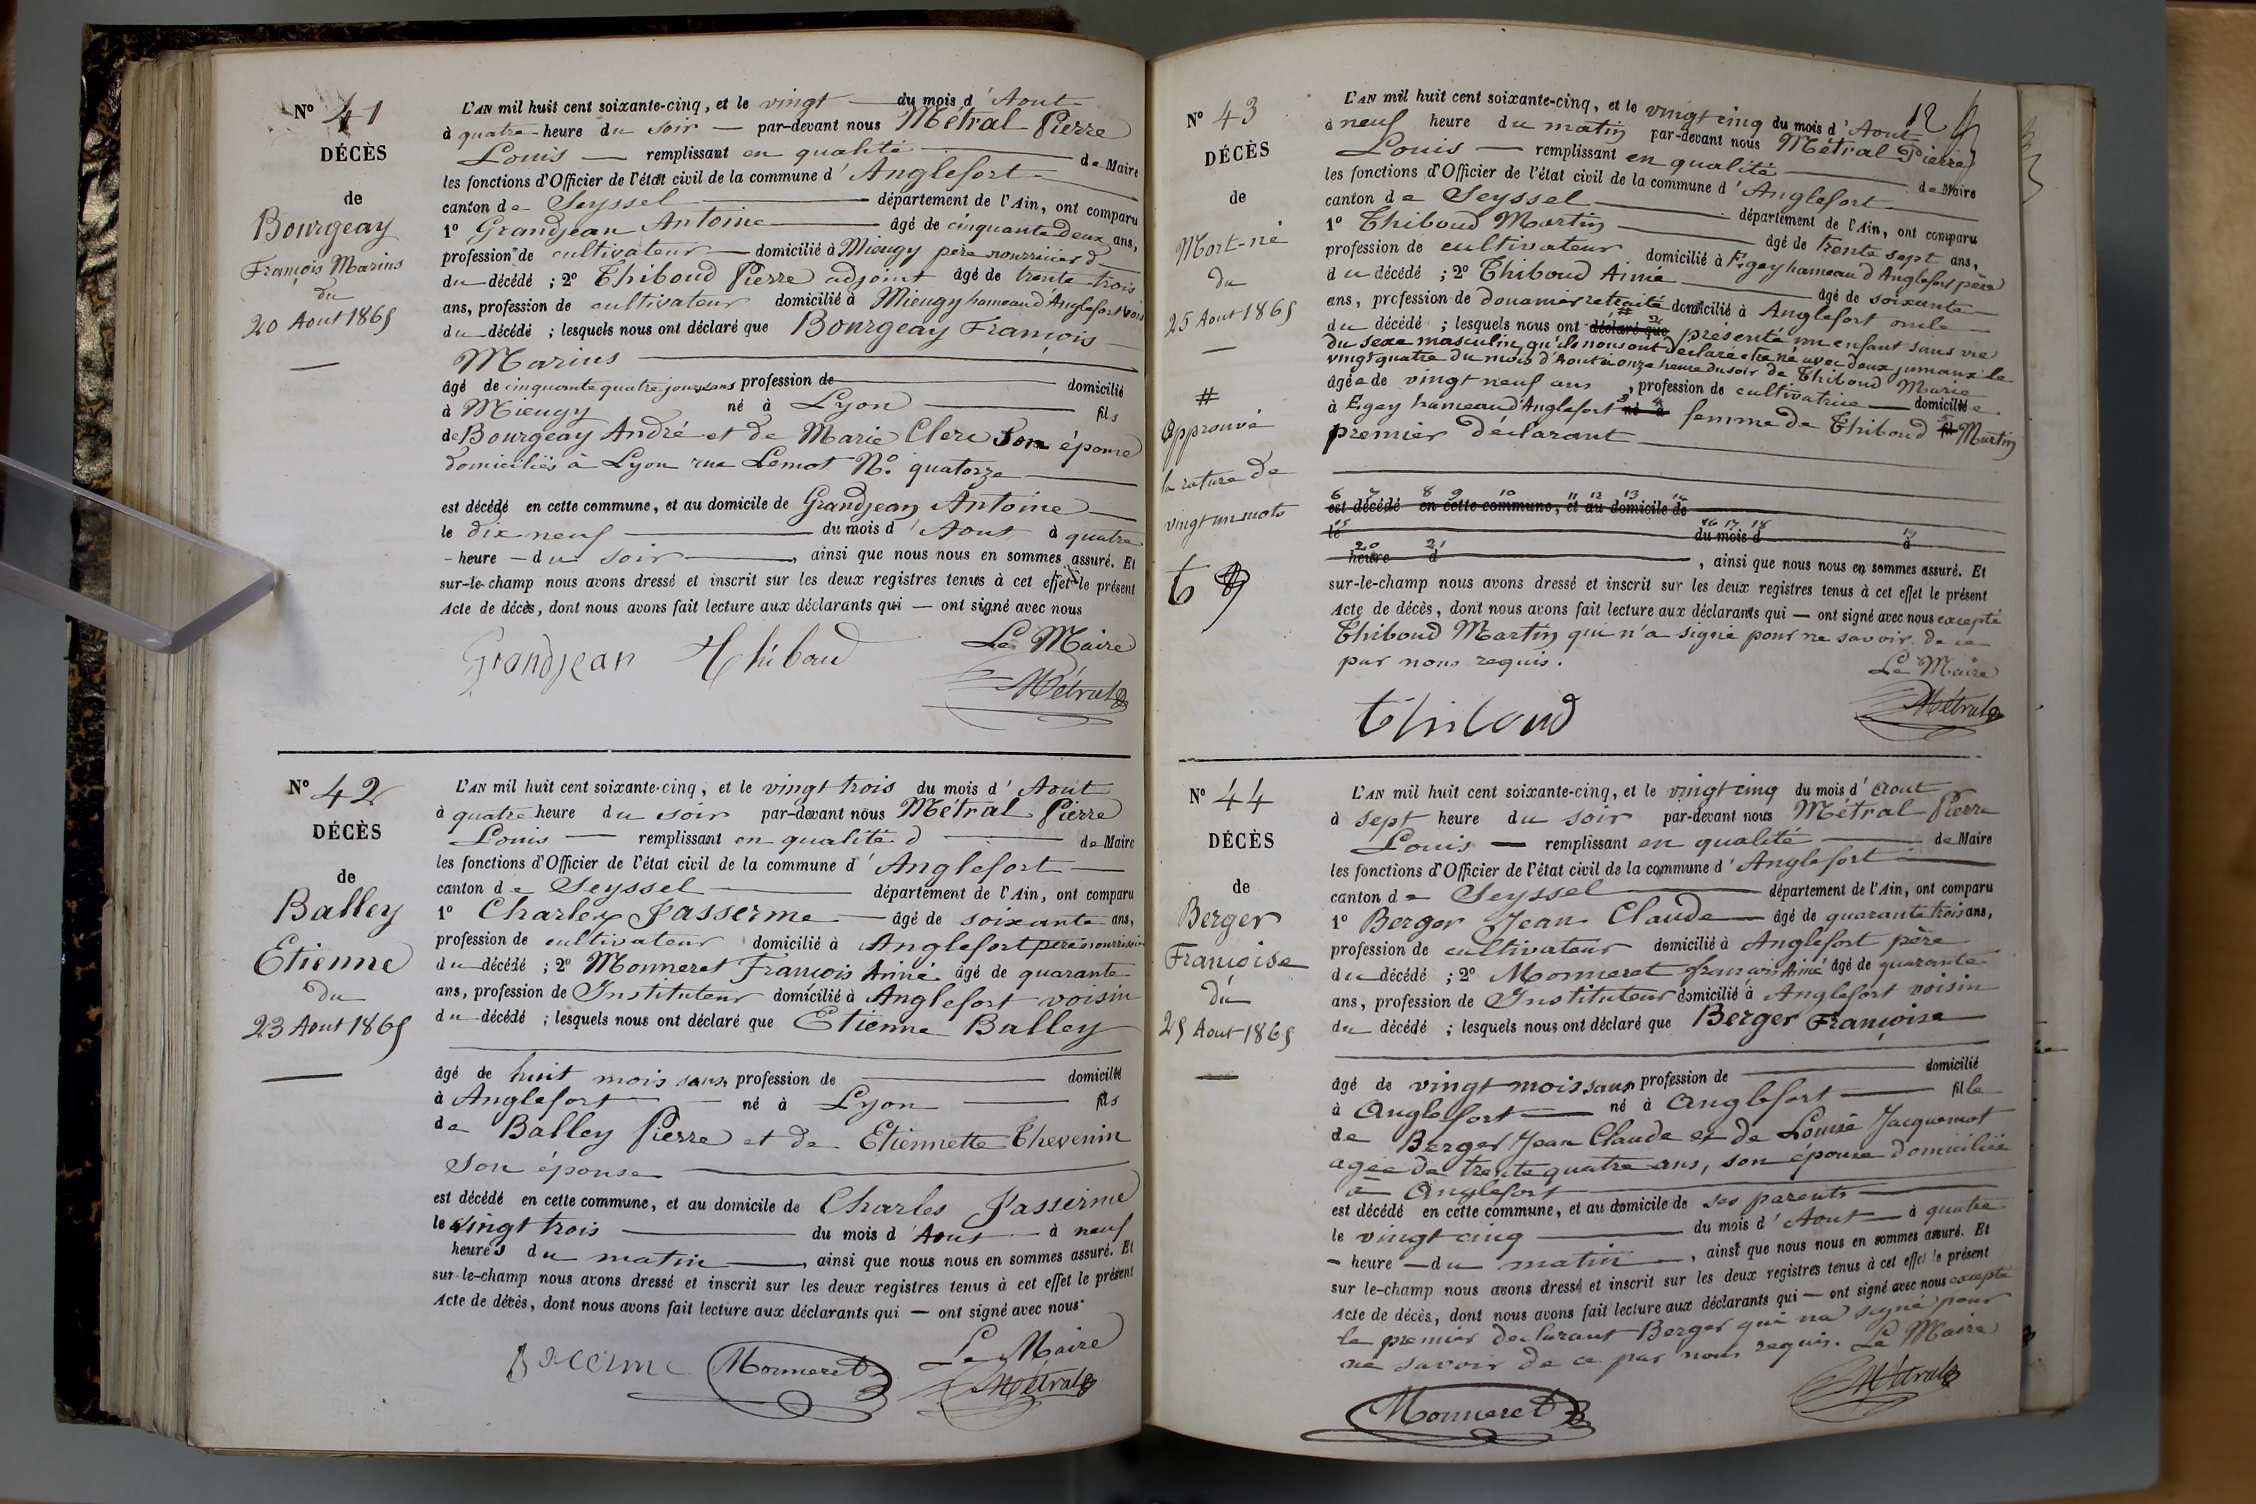 N° 41
DÉCÈS
de
Bourgeay
François Marius
du
20 Aout 1865
L'AN mil huit cent soixante-cinq, et le vingt du mois d'Aout
à quatre heure du soir par-devant nous Métral Pierre
Louis remplissant en qualité de Maire
les fonctions d'Officier de l'état civil de la commune d'Anglefort
canton de Seyssel département de l'Ain, ont comparu
1° Grandjean Antoine âgé de cinquante deux ans,
profession de cultivateur domicilié à Mieugy père nourricier d
du décédé ; 2° Thiboud Pierre adjoint âgé de trente trois
ans, profession de cultivateur domicilié à Mieugy hameau d'Anglefort voisin
du décédé ; lesquels nous ont déclaré que Bourgeay François
Marius
âgé de cinquante quatre jours sans profession de domicilié
à Mieugy né à Lyon fils
de Bourgeay André et de Marie Clerc Son épouse
domiciliés à Lyon rue Lemot N°. quatorze
est décédé en cette commune, et au domicile de Grandjean Antoine
le dix neuf du mois d'Aout à quatre
heure du soir, ainsi que nous nous en sommes assuré. Et
sur-le-champ nous avons dressé et inscrit sur les deux registres tenus à cet effet le présent
Acte de décès, dont nous avons fait lecture aux déclarants qui — ont signé avec nous
Le Maire
Grandjean Thiboud
Métral
N° 42
DÉCÈS
de
Balley
Etienne
du
23 Aout 1865
L'AN mil huit cent soixante-cinq, et le vingt trois du mois d'Aout
à quatre heure du soir par-devant nous Métral Pierre
Louis remplissant en qualité d de Maire
les fonctions d'Officier de l'état civil de la commune d'Anglefort
canton de Seyssel département de l'Ain, ont comparu
1° Charles Jasserme âgé de soixante ans,
profession de cultivateur domicilié à Anglefort père nourricier
du décédé ; 2° Monneret François Aimé âgé de quarante
ans, profession de Instituteur domicilié à Anglefort voisin
du décédé ; lesquels nous ont déclaré que Etienne Balley
âgé de huit mois sans profession de domicilié
à Anglefort né à Lyon fils
de Balley Pierre et de Etiennette Thevenin
Son épouse
est décédé en cette commune, et au domicile de Charles Jasserme
le vingt trois du mois d'Aout à neuf
heures du matin, ainsi que nous nous en sommes assuré. Et
sur-le-champ nous avons dressé et inscrit sur les deux registres tenus à cet effet le présent
Acte de décès, dont nous avons fait lecture aux déclarants qui — ont signé avec nous
Le Maire
Monneret
Métral
N° 43
DÉCÈS
de
Mort-né
du
25 Aout 1865
#
Approuvé
la rature de
vingt un mots
12
L'AN mil huit cent soixante-cinq, et le vingt cinq du mois d'Aout
à neuf heure du matin par-devant nous Métral Pierre
Louis — remplissant en qualité de Maire
les fonctions d'Officier de l'état civil de la commune d'Anglefort
canton de Seyssel département de l'Ain, ont comparu
1° Thiboud Martin âgé de trente sept ans,
profession de cultivateur domicilié à Egey hameau d'Anglefort père
du décédé ; 2° Thiboud Aimé âgé de soixante
ans, profession de douanier retraité domicilié à Anglefort oncle
du décédé ; lesquels nous ont déclaré que présenté un enfant sans vie
du sexe masculin, qu'ils nous ont déclaré etre né avec deux jumaux le
vingt quatre du mois d'Aout à onze heure du soir de Thiboud Marie
âgée de vingt neuf ans, profession de cultivatrice domiciliée
à Egey hameau d'Anglefort né à femme de Thiboud fil Martin
premier déclarant
6 7 8 9 10 11 12 13 14
est décédé en cette commune, et au domicile de
15 16 17 18 19
le du mois d à
20 21
heure d, ainsi que nous nous en sommes assuré. Et
sur-le-champ nous avons dressé et inscrit sur les deux registres tenus à cet effet le présent
Acte de décès, dont nous avons fait lecture aux déclarants qui — ont signé avec nous excepté
Thiboud Martin qui n'a signé pour ne savoir de ce
par nous requis.
Le Maire
Thiboud
Métral
N° 44
DÉCÈS
de
Berger
Françoise
du
25 Aout 1865
L'AN mil huit cent soixante-cinq, et le vingt cinq du mois d'Aout
à sept heure du soir par-devant nous Métral Pierre
Louis — remplissant en qualité de Maire
les fonctions d'Officier de l'état civil de la commune d'Anglefort
canton de Seyssel département de l'Ain, ont comparu
1° Berger Jean Claude âgé de quarante trois ans,
profession de cultivateur domicilié à Anglefort père
du décédé ; 2° Monneret françois Aimé âgé de quarante
ans, profession de Instituteur domicilié à Anglefort voisin
du décédé ; lesquels nous ont déclaré que Berger Françoise
âgé de vingt mois sans profession de domicilié
à Anglefort né à Anglefort fille
de Berger Jean Claude et de Louise Jacquemot
agée de trente quatre ans, son épouse domiciliée
à Anglefort
est décédé en cette commune, et au domicile de ses parents
le vingt cinq du mois d'Aout à quatre
heure du matin, ainsi que nous nous en sommes assuré. Et
sur le-champ nous avons dressé et inscrit sur les deux registres tenus à cet effet le présent
Acte de décès, dont nous avons fait lecture aux déclarants qui — ont signé avec nous excepté
le premier déclarant Berger qui na signé pour
ne savoir de ce par nous requis. Le Maire
Métral
Monneret